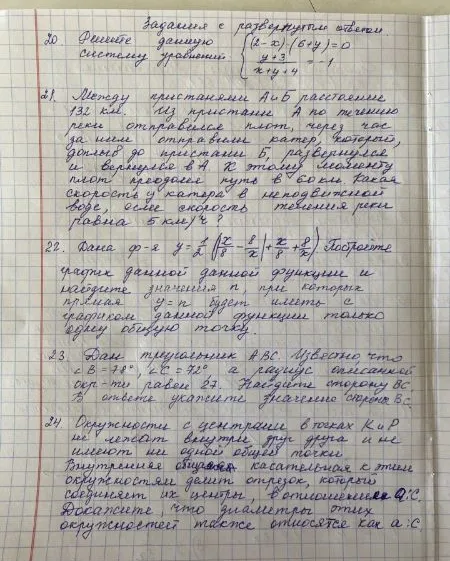 Задания с развернутым ответом
20. Решите данную
систему уравнений { (2-x)·(6+y)=0
(y+3)/(x+y+4) = -1
21. Между пристанями А и Б расстояние
132 км. Из пристани А по течению
реки отправился плот, через час
за ним отправили катер, который,
доплыв до пристани Б, развернулся
и вернулся в А. К этому моменту
плот преодолел путь в 60 км. Какая
скорость у катера в неподвижной
воде, если скорость течения реки
равна 5 км/ч?
22. Дана ф-я y=1/2(|x/8-8/x|+x/8+8/x). Постройте
график данной данной функции и
найдите значения n, при которых
прямая y=n будет иметь с
графиком данной функции только
одну общую точку.
23. Дан треугольник АВС. Известно, что
∠B=78°, ∠C=72°, а радиус описанной
окр-ти равен 27. Найдите сторону ВС.
В ответе укажите значение стороны ВС.
24. Окружности с центрами в точках К и Р
не лежат внутри друг друга и не
имеют ни одной общей точки.
Внутренняя общая касательная к этим
окружностям делит отрезок, который
соединяет их центры, в отношении а:с.
Докажите, что диаметры этих
окружностей также относятся как а:с.